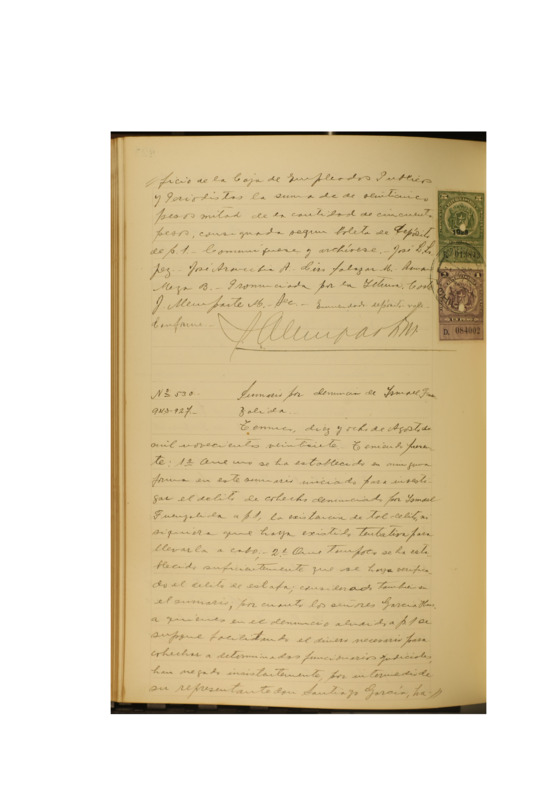 oficio de la Caja de Empleados Públicos
y Periodistas la suma de de veinticinco
pesos mitad de la cantidad de cincuenta
pesos, consignada según boleta de depósito
de f. 1.- Comuníquese y archívese.- José D. Ló
pez.- José Aravena A. Luis Salazar M. Roman
Meza B.- Pronunciada por la Iltma. Corte
J. Alemparte M.-
Conforme.-
1928
D. 084002
Nº 530.
Sumario por denuncia de Ismael Fuen
zalida.
Temuco, diez y ocho de Agosto de
mil novecientos veintisiete. Teniendo presen
te: 1º Que no se ha establecido en ninguna
forma en este sumario iniciado para investi
gar el delito de cohecho denunciado por Ismael
Fuenzalida a f 1, la existencia de tal delito, ni
siquiera que haya existido tentativa para
llevarla a cabo,- 2º Que tampoco se ha esta
blecido suficientemente que se haya cometi
do el delito de estafa, considerado también en
el sumario, por cuanto los señores García
a quienes en el denuncio aludido a f 1 se
supone facilitando el dinero necesario para
cohechar a determinados funcionarios judiciales,
han negado insistentemente, por intermedio de
su representante don Santiago García, ha-